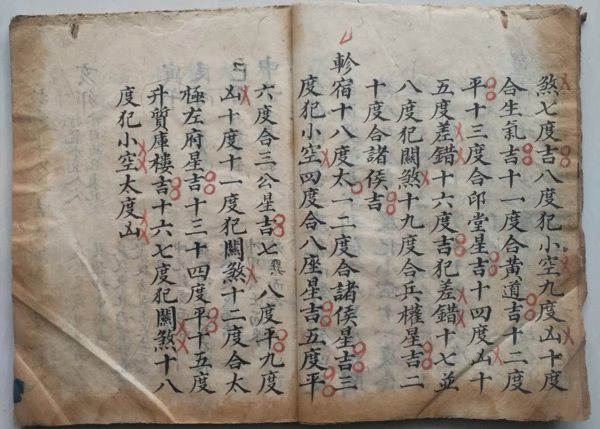 煞七度吉八度犯小空九度凶十度
合生氣吉十一度合黃道吉十二度
平十三度合印堂星吉十四度凶十
五度差錯十六度吉犯差錯十七並
八度犯關煞十九度合兵權星吉二
十度合諸侯吉
軫宿十八度太一二度合諸侯星吉三
度犯小空四度合八座星吉五度平
六度合三公星吉七八度平九度
凶十度十一度犯關煞十二度合太
極左府星吉十三十四度平十五度
升質庫樓吉十六七度犯關煞十八
度犯小空太度凶